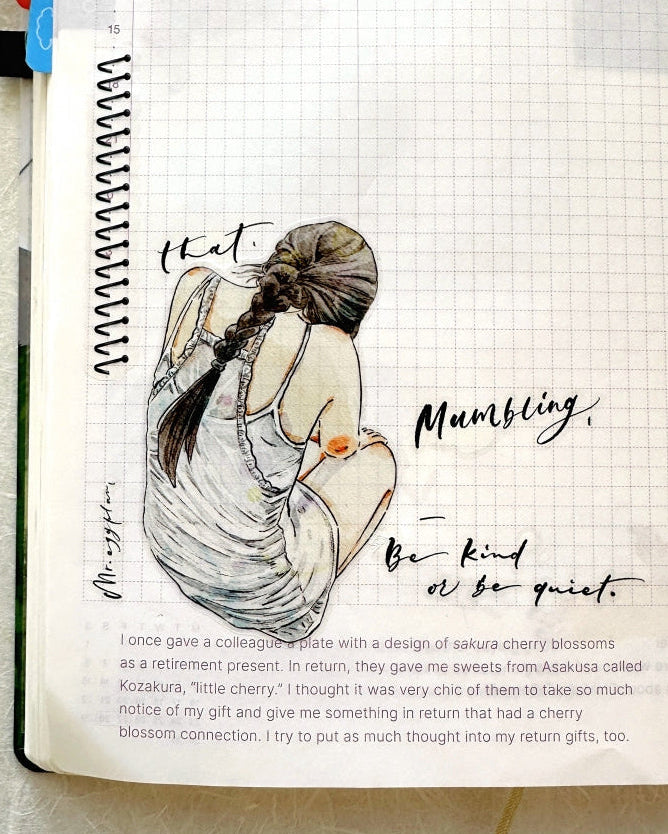 15
that.
Mumbling,
Be kind
or be quiet.
I once gave a colleague a plate with a design of sakura cherry blossoms
as a retirement present. In return, they gave me sweets from Asakusa called
Kozakura, “little cherry.” I thought it was very chic of them to take so much
notice of my gift and give me something in return that had a cherry
blossom connection. I try to put as much thought into my return gifts, too.